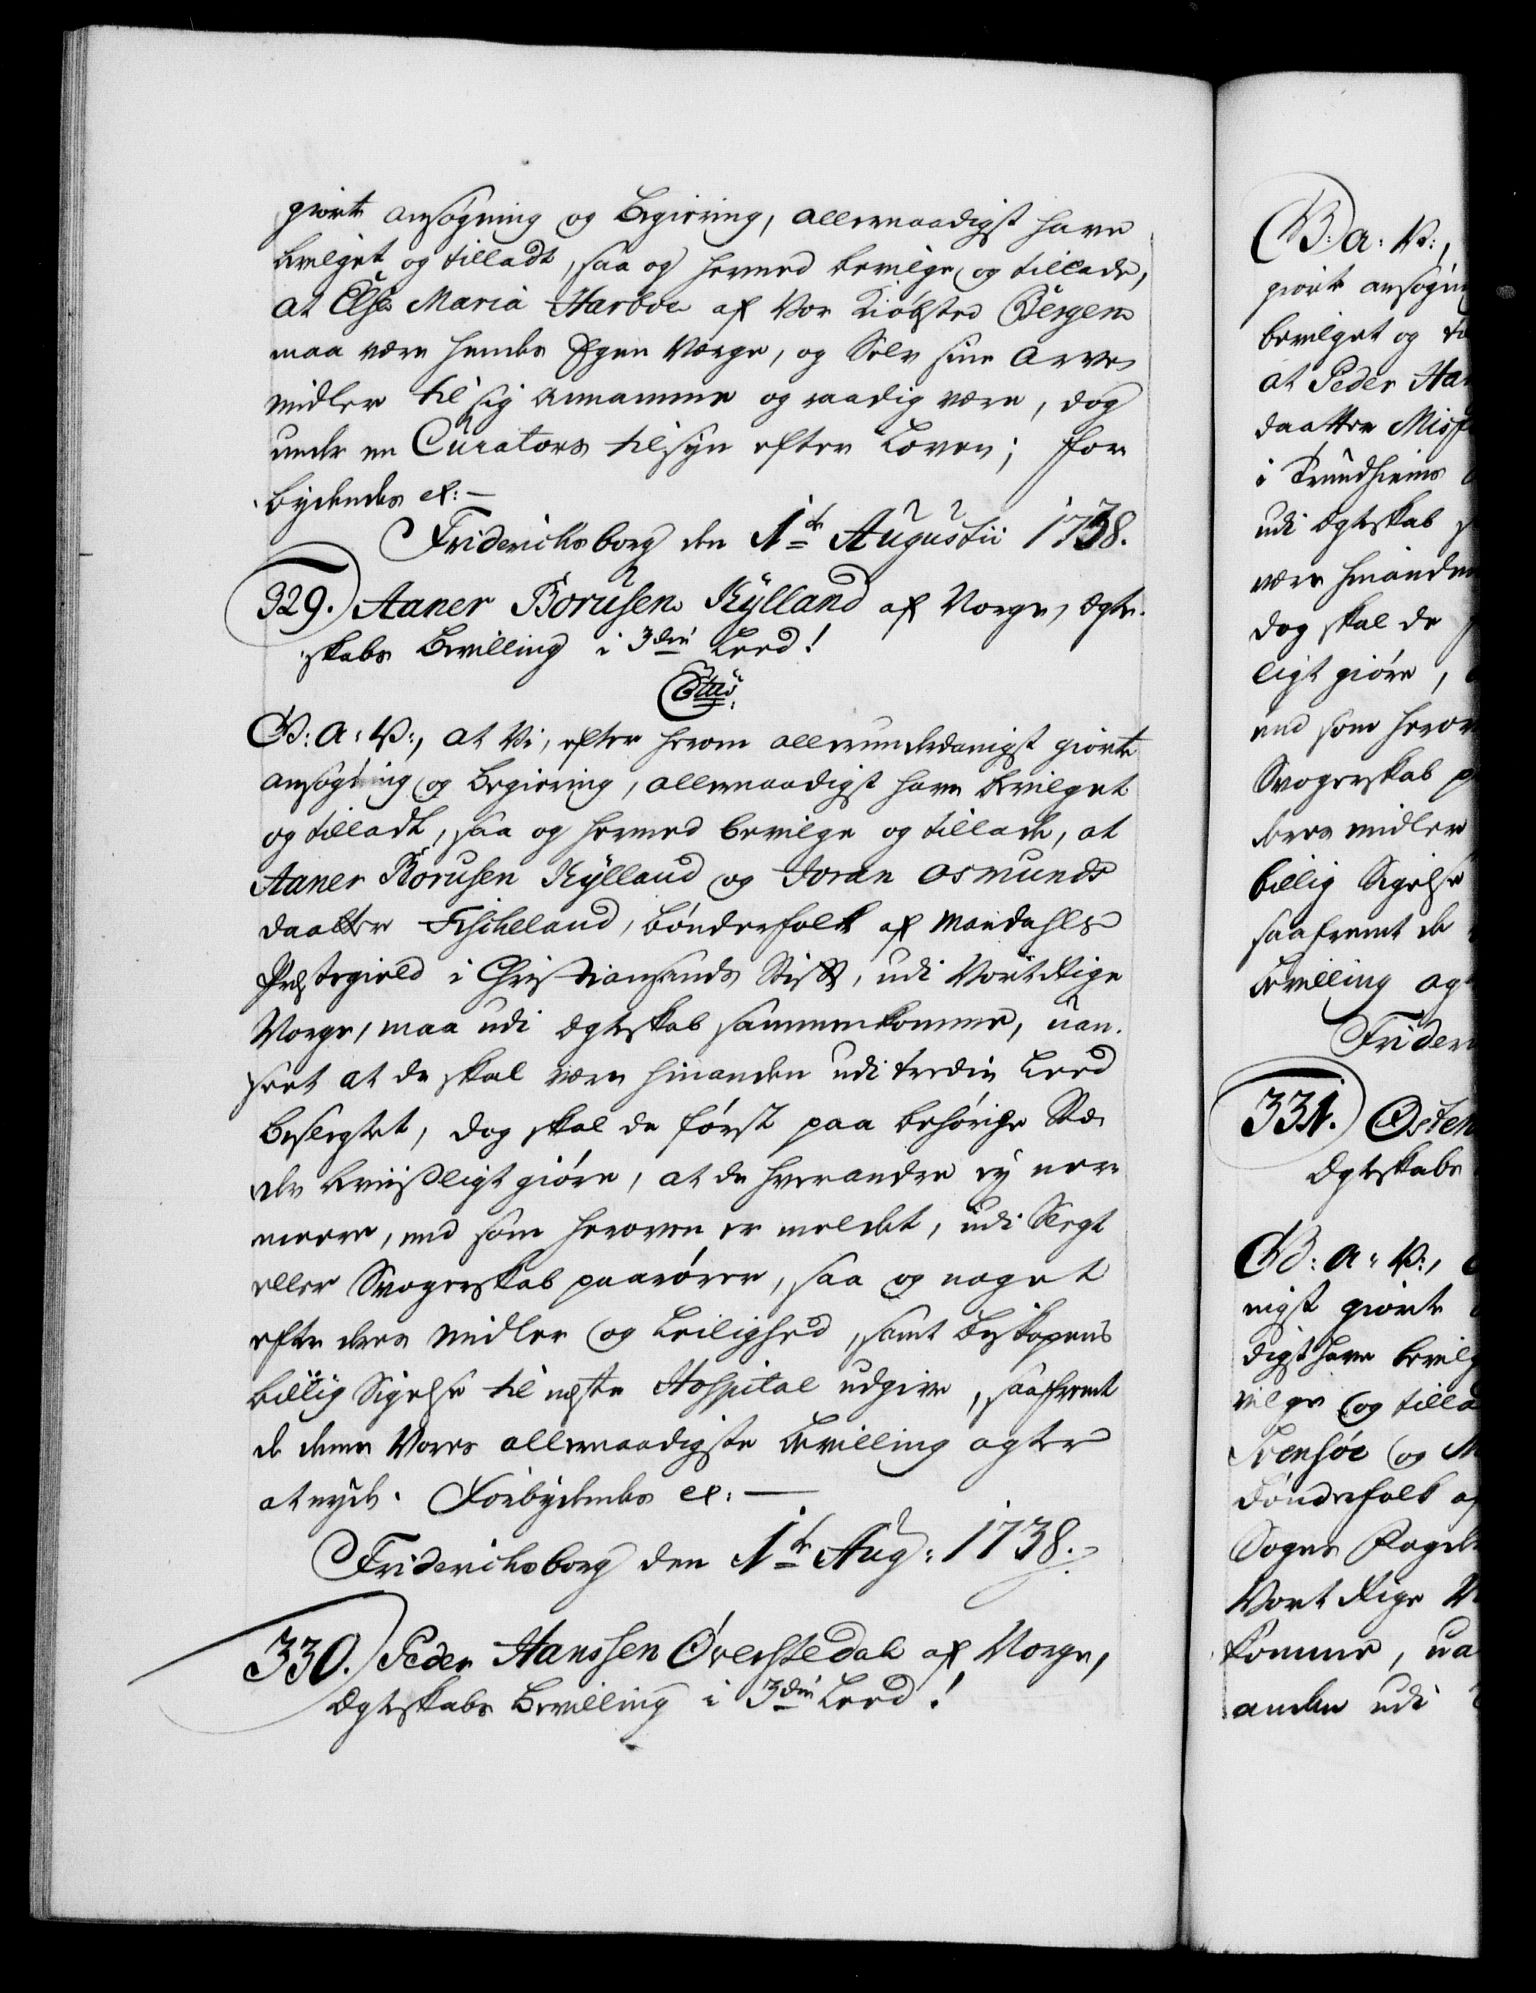 giorte ansøgning og Begiering, allernaadigst have
bevilget og tilladt, saa og hermed bevilge og tillade,
at Else Maria Harboe af Vor Kiøbsted Bergen
maa være hendes Egen Værge, og Selv sine Arve
midler til sig annamme og raadig være, dog
under en Curators tilsyn efter Loven; For
bydendes etc:—
Friderichsborg den 1te Augustii 1738.
329. Aaner Borusen Kÿlland af Norge, Ægte-
skabs Bevilling i 3die Leed!
G: A: V:, at Vi, efter herom allerunderdanigst giorte
ansøgning og Begiering, allernaadigst have bevilget
og tilladt, saa og hermed bevilge og tillade, at
Aaner Borusen Kÿlland og Joran Osmunds
daatter Fisheland, bønderfolk af Mandahls
Præstegield i Christiansands Stift, udi Vort Rige
Norge, maa udi Ægteskab sammenkomme, uan-
seet at de skal være hinanden udi tredie Leed
beslegtet, dog skal de først paa behørige Stæ-
der beviisligt giøre, at de hverandre ey nær-
meere, end som heroven er meldet, udi Slegt
eller Svogerskab paarører, saa og noget
efter deres midler og Leilighed, samt Biskopens
billig Sigelse til neste Hospital udgive, saafremt
de denne Vores allernaadigste Bevilling agter
at nyde. Forbydendes etc:—
Friderichsborg den 1te Aug: 1738.
330. Peder Hanssen Øverstedal af Norge,
Ægteskabs Bevilling i 3die Leed!
G: A: V:,
giorte ansøgning
bevilget og
at Peder
daatter
i Trundhiems
udi Ægteskab
være hinanden
dog skal de
ligt giøre,
end som herov
Svogerskab
deres midler
billig Sigelse
saafremt de
Bevilling
Frider
331. Osten
Ægteskabs
G: A: V:,
nigst giorte
digst have
vilge og
og
bønderfolk af
Sogns
Vort Rige
komme,
anden udi